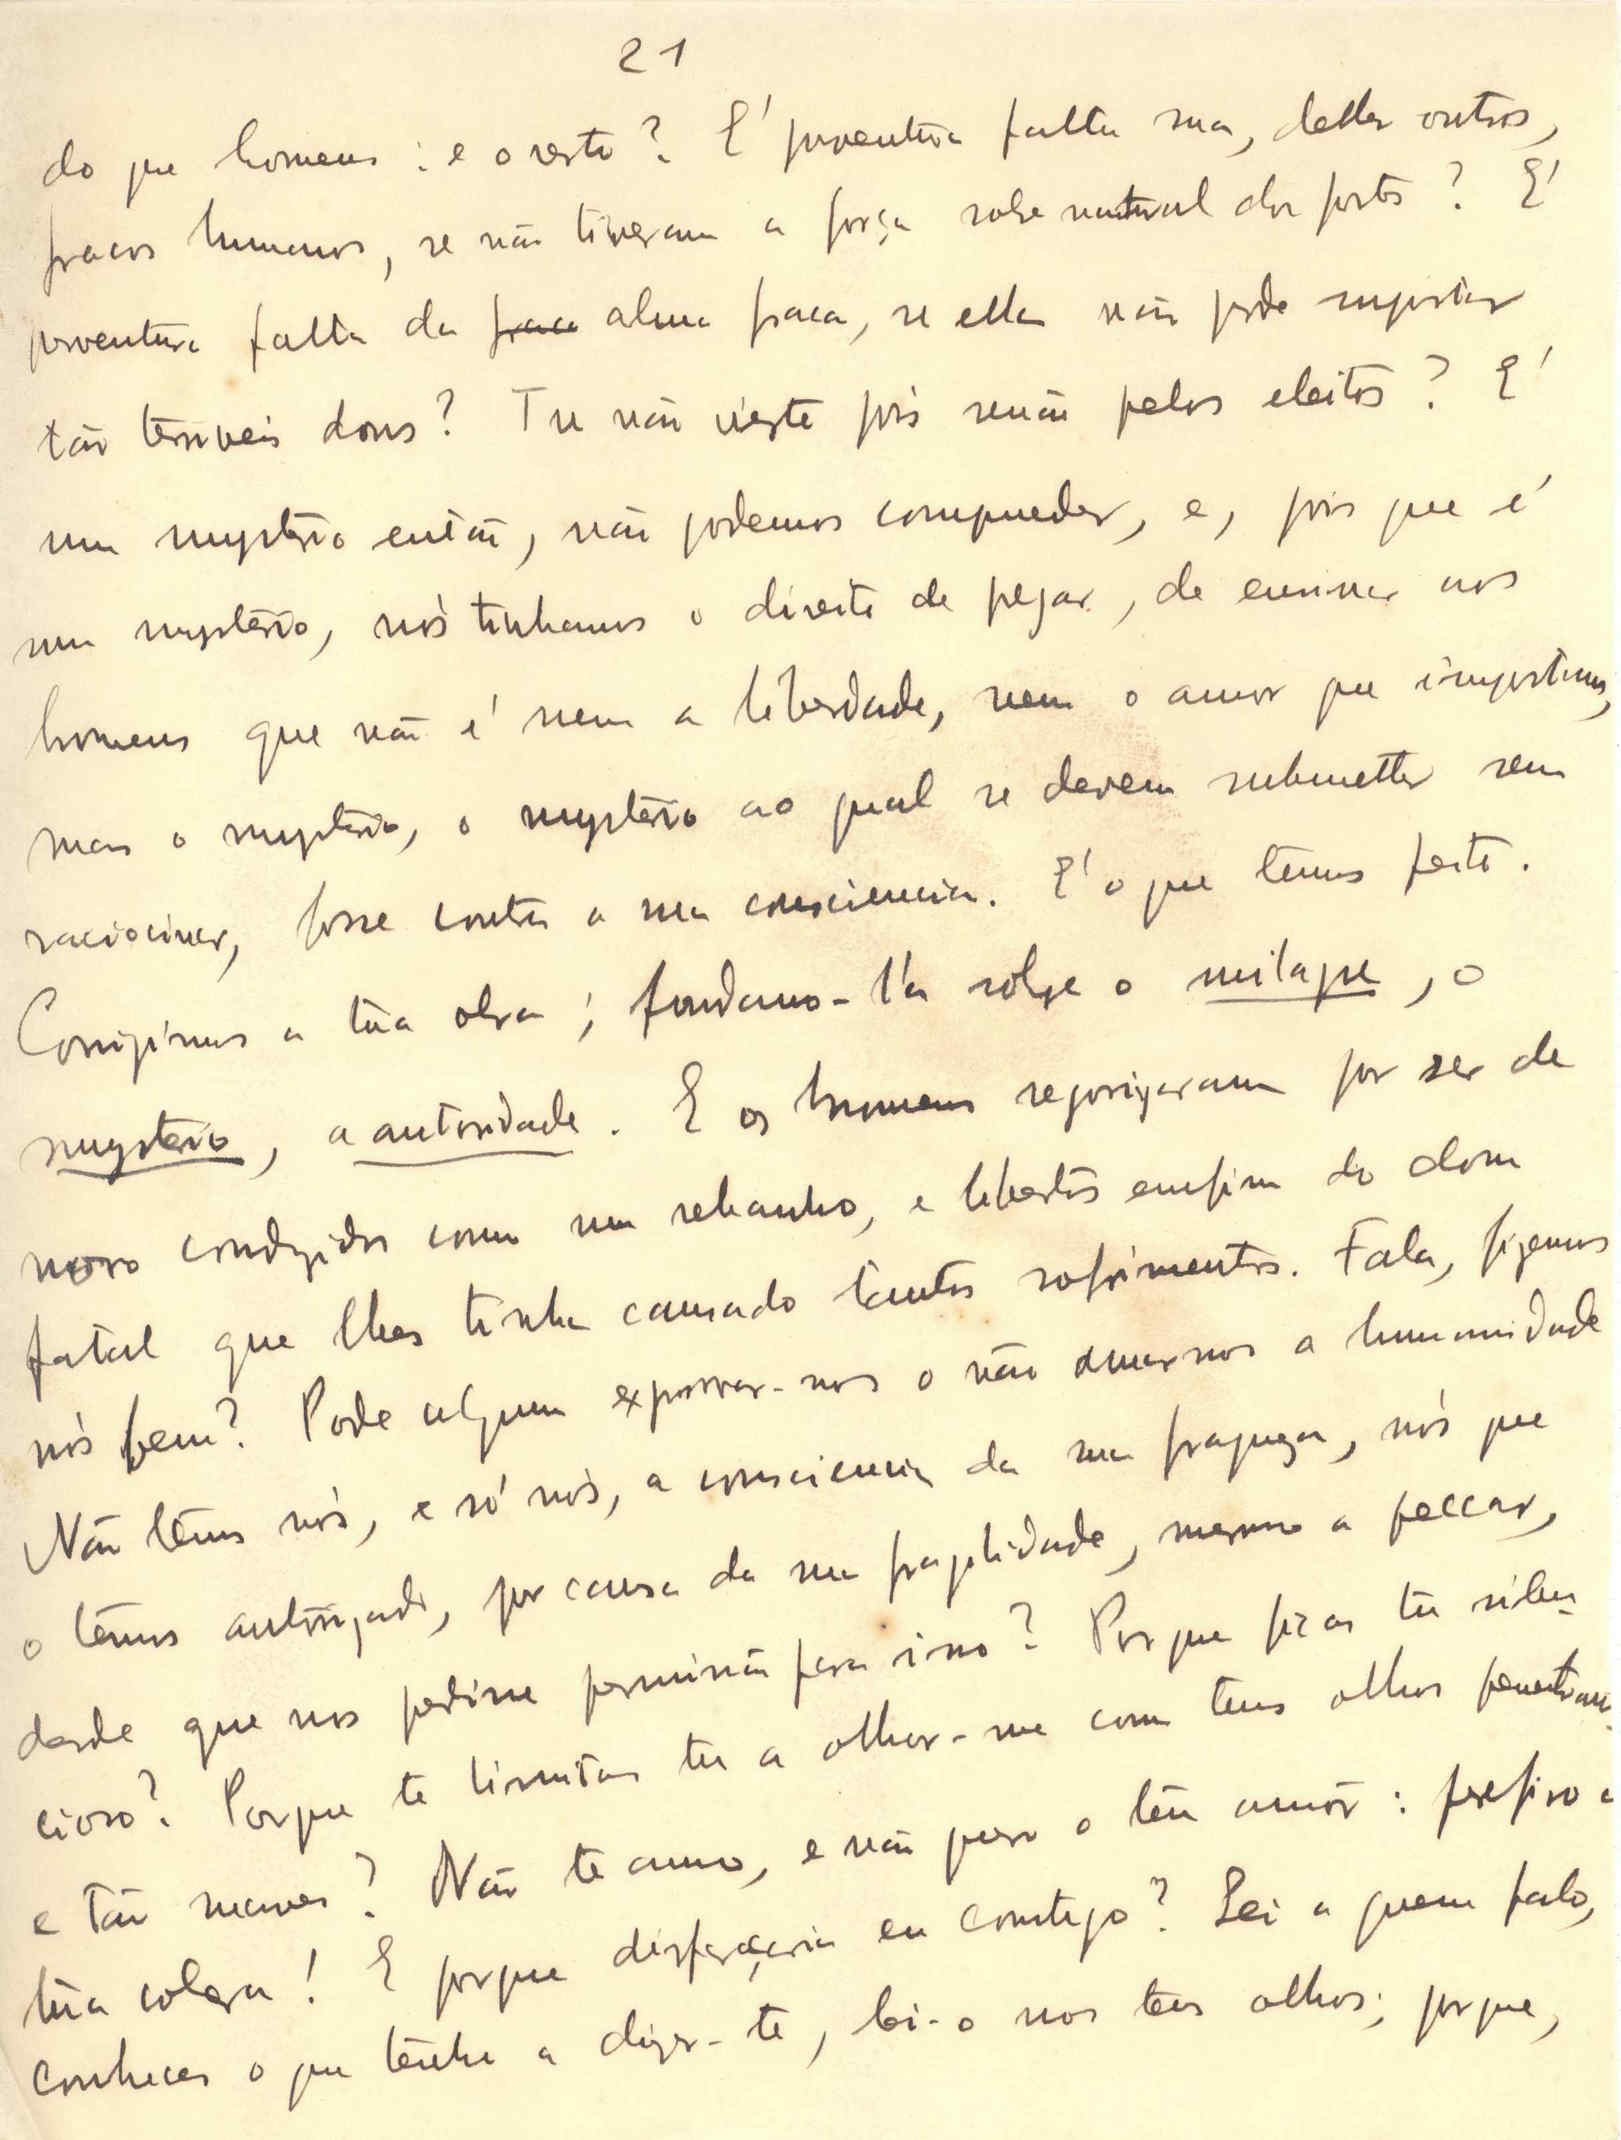 21
do que homens : e o resto? E' porventura falta sua, delles outros,
fracos humanos, se não tiveram a força sobrenatural dos fortes? E'
porventura falta da fraca alma fraca, se ella não pode suportar
tão terriveis dons? Tu não vieste pois senão pelos eleitos? E'
um mysterio então, não podemos comprender, e, pois que é
um mysterio, nós tinhamos o direito de pregar, de ensinar aos
homens que não é nem a liberdade, nem o amor que importam,
mas o mysterio, o mysterio ao qual se devem submetter sem
raciocinar, fosse contra a sua consciencia. E' o que temos feito.
Corrigimos a túa obra; fundamo-l'a sôbre o milagre, o
mysterio, a autoridade. E os homens regorigaram por ser de
novo conduzidos como um rebanho, e libertos emfim do dom
fatal que lhes tinha causado tantos sofrimentos. Fala, fizemos
nós bem? Pode alguem exprovar-nos o não amarmos a humanidade
Não têmos nós, e só nós, a consciencia da sua fraqueza, nós que
o têmos autorizado, por causa da sua fragilidade, mesmo a peccar,
desde que nos pedisse permissão para isso? Porque ficas tu silen-
cioso? Porque te limitas tu a olhar-me com teus olhos penetrantes
e tão suaves? Não te amo, e não quero o têu amôr : prefiro a
túa colera! E porque disfarçaria eu comtigo? Sei a quem falo,
conheces o que tênho a dizer-te, lei-o nos teus olhos; porque,